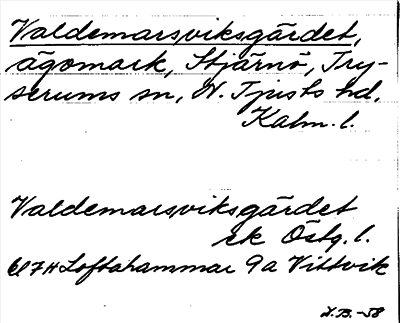 Valdemarsviksgärdet,
ägomark, Stjärnö, Try-
serums sn, N. Tjusts hd,
Kalm. l.
Valdemarsviksgärdet
ek Östg. l.
6l7H Loftahammar 9a Vittvik
N.B.-58